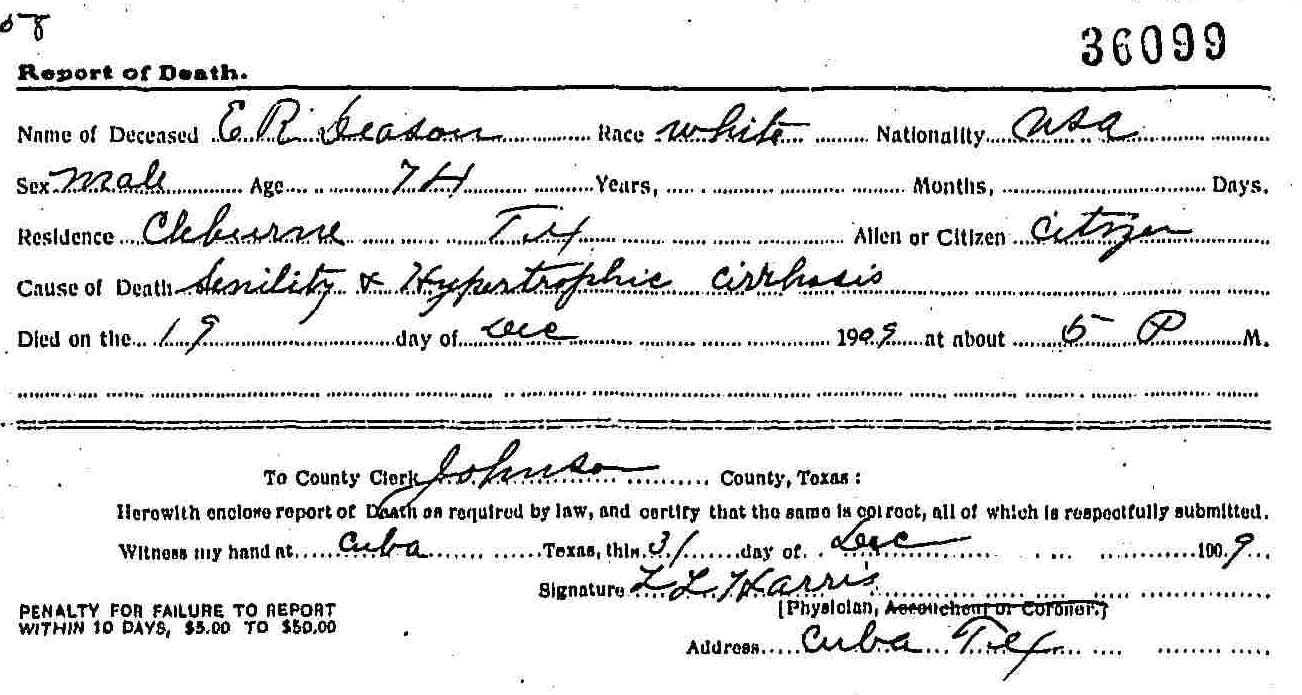 58
36099
Report of Death.
Name of Deceased E R Deason Race white Nationality USA
Sex male Age 74 Years, Months, Days.
Residence Cleburne Tex Alien or Citizen Citizen
Cause of Death Senility & Hypertrophic cirrhosis
Died on the 19 day of Dec 1909 at about 5 P M.
To County Clerk Johnson County, Texas:
Herewith enclose report of Death as required by law, and certify that the same is correct, all of which is respectfully submitted.
Witness my hand at Cuba Texas, this 31 day of Dec 1909
Signature L L Harris
PENALTY FOR FAILURE TO REPORT
WITHIN 10 DAYS, $5.00 TO $50.00
[Physician, Accoucheur or Coroner.]
Address Cuba Tex